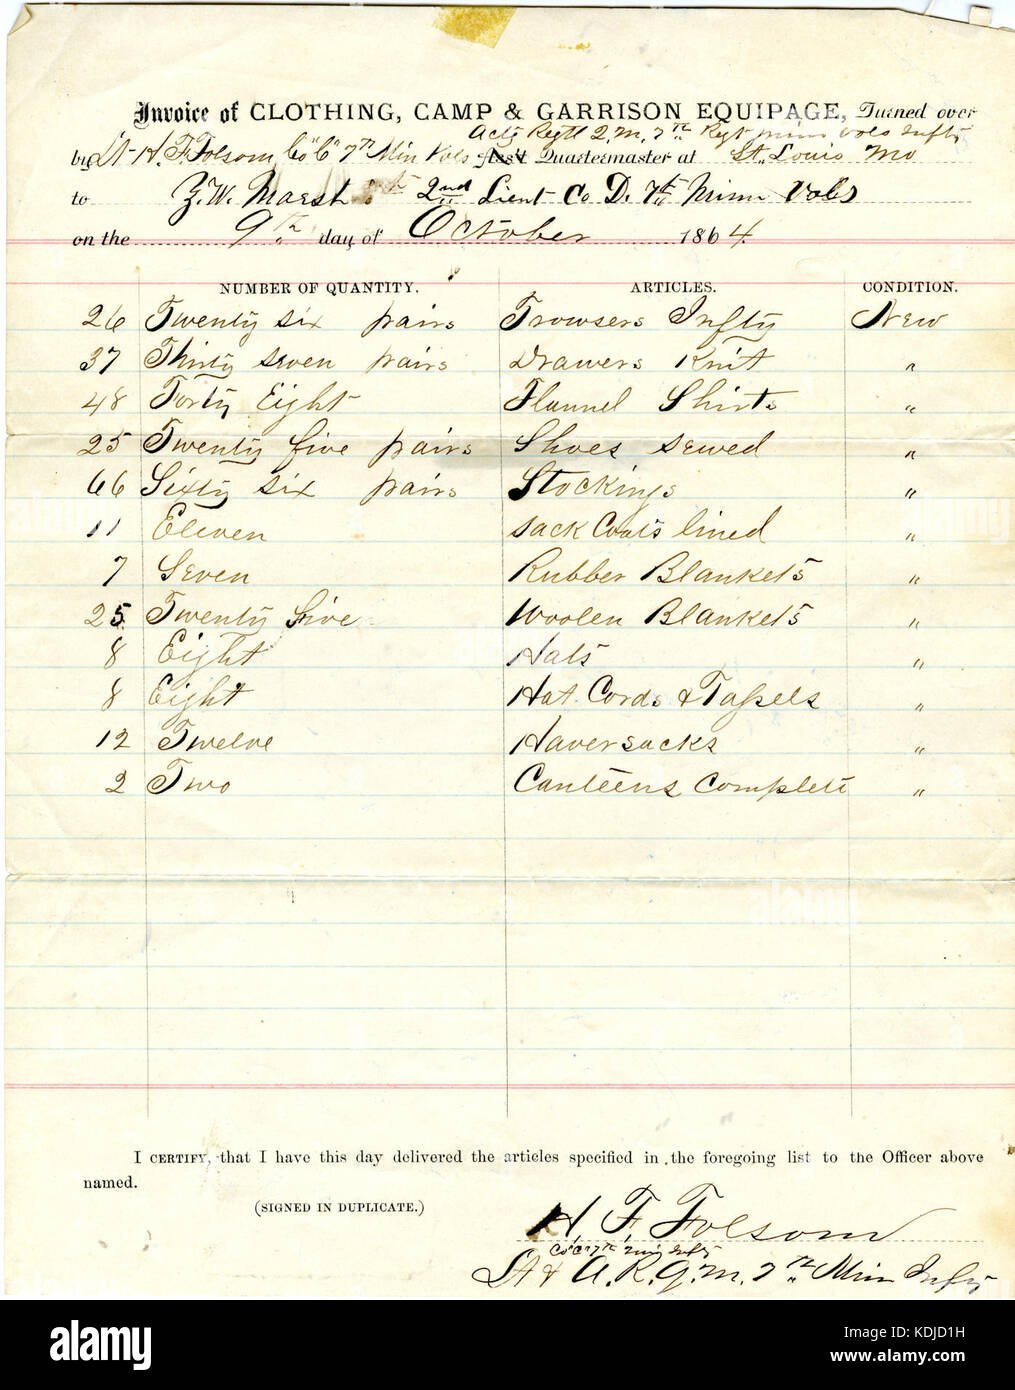 Invoice of CLOTHING, CAMP & GARRISON EQUIPAGE, Turned over
Actg Regtl Q.M. 7th Regt Minn Vols Infty
by Lt H. F. Folsom Co "C" 7th Min Vols Ass't Quartermaster at St. Louis Mo
to Z. W. Marsh 2nd Lieut Co D. 7th Minn Vols
on the 9th day of October 1864.
NUMBER OF QUANTITY. ARTICLES. CONDITION.
26 Twenty six pairs Trowsers Infty New
37 Thirty seven pairs Drawers Knit "
48 Forty Eight Flannel Shirts "
25 Twenty five pairs Shoes sewed "
66 Sixty six pairs Stockings "
11 Eleven Sack Coats lined "
7 Seven Rubber Blankets "
25 Twenty five Woolen Blankets "
8 Eight Hats "
8 Eight Hat Cords & Tassels "
12 Twelve Haversacks "
2 Two Canteens complete "
I CERTIFY, that I have this day delivered the articles specified in the foregoing list to the Officer above
named.
(SIGNED IN DUPLICATE.)
H. F. Folsom
Co "C" 7th Min Infty
Lt & A. R. Q. M. 7th Minn Infty
alamy
Image ID: KDJD1H
www.alamy.com